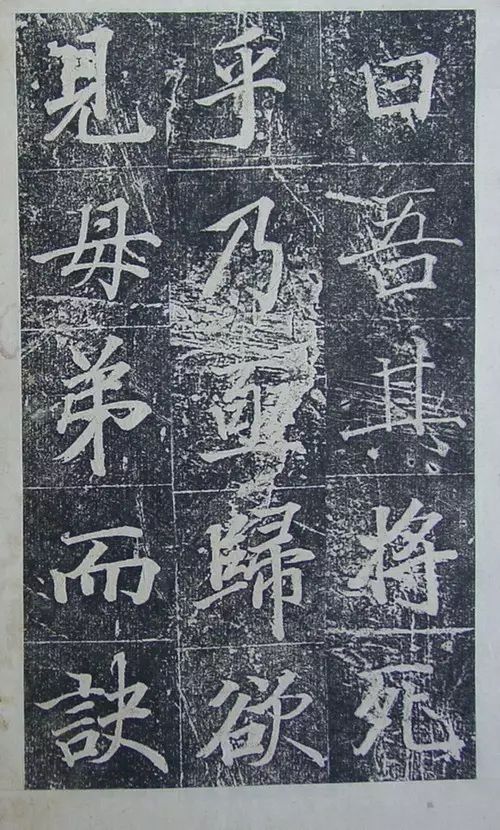 曰吾其將死
乎乃亟歸欲
見母弟而訣